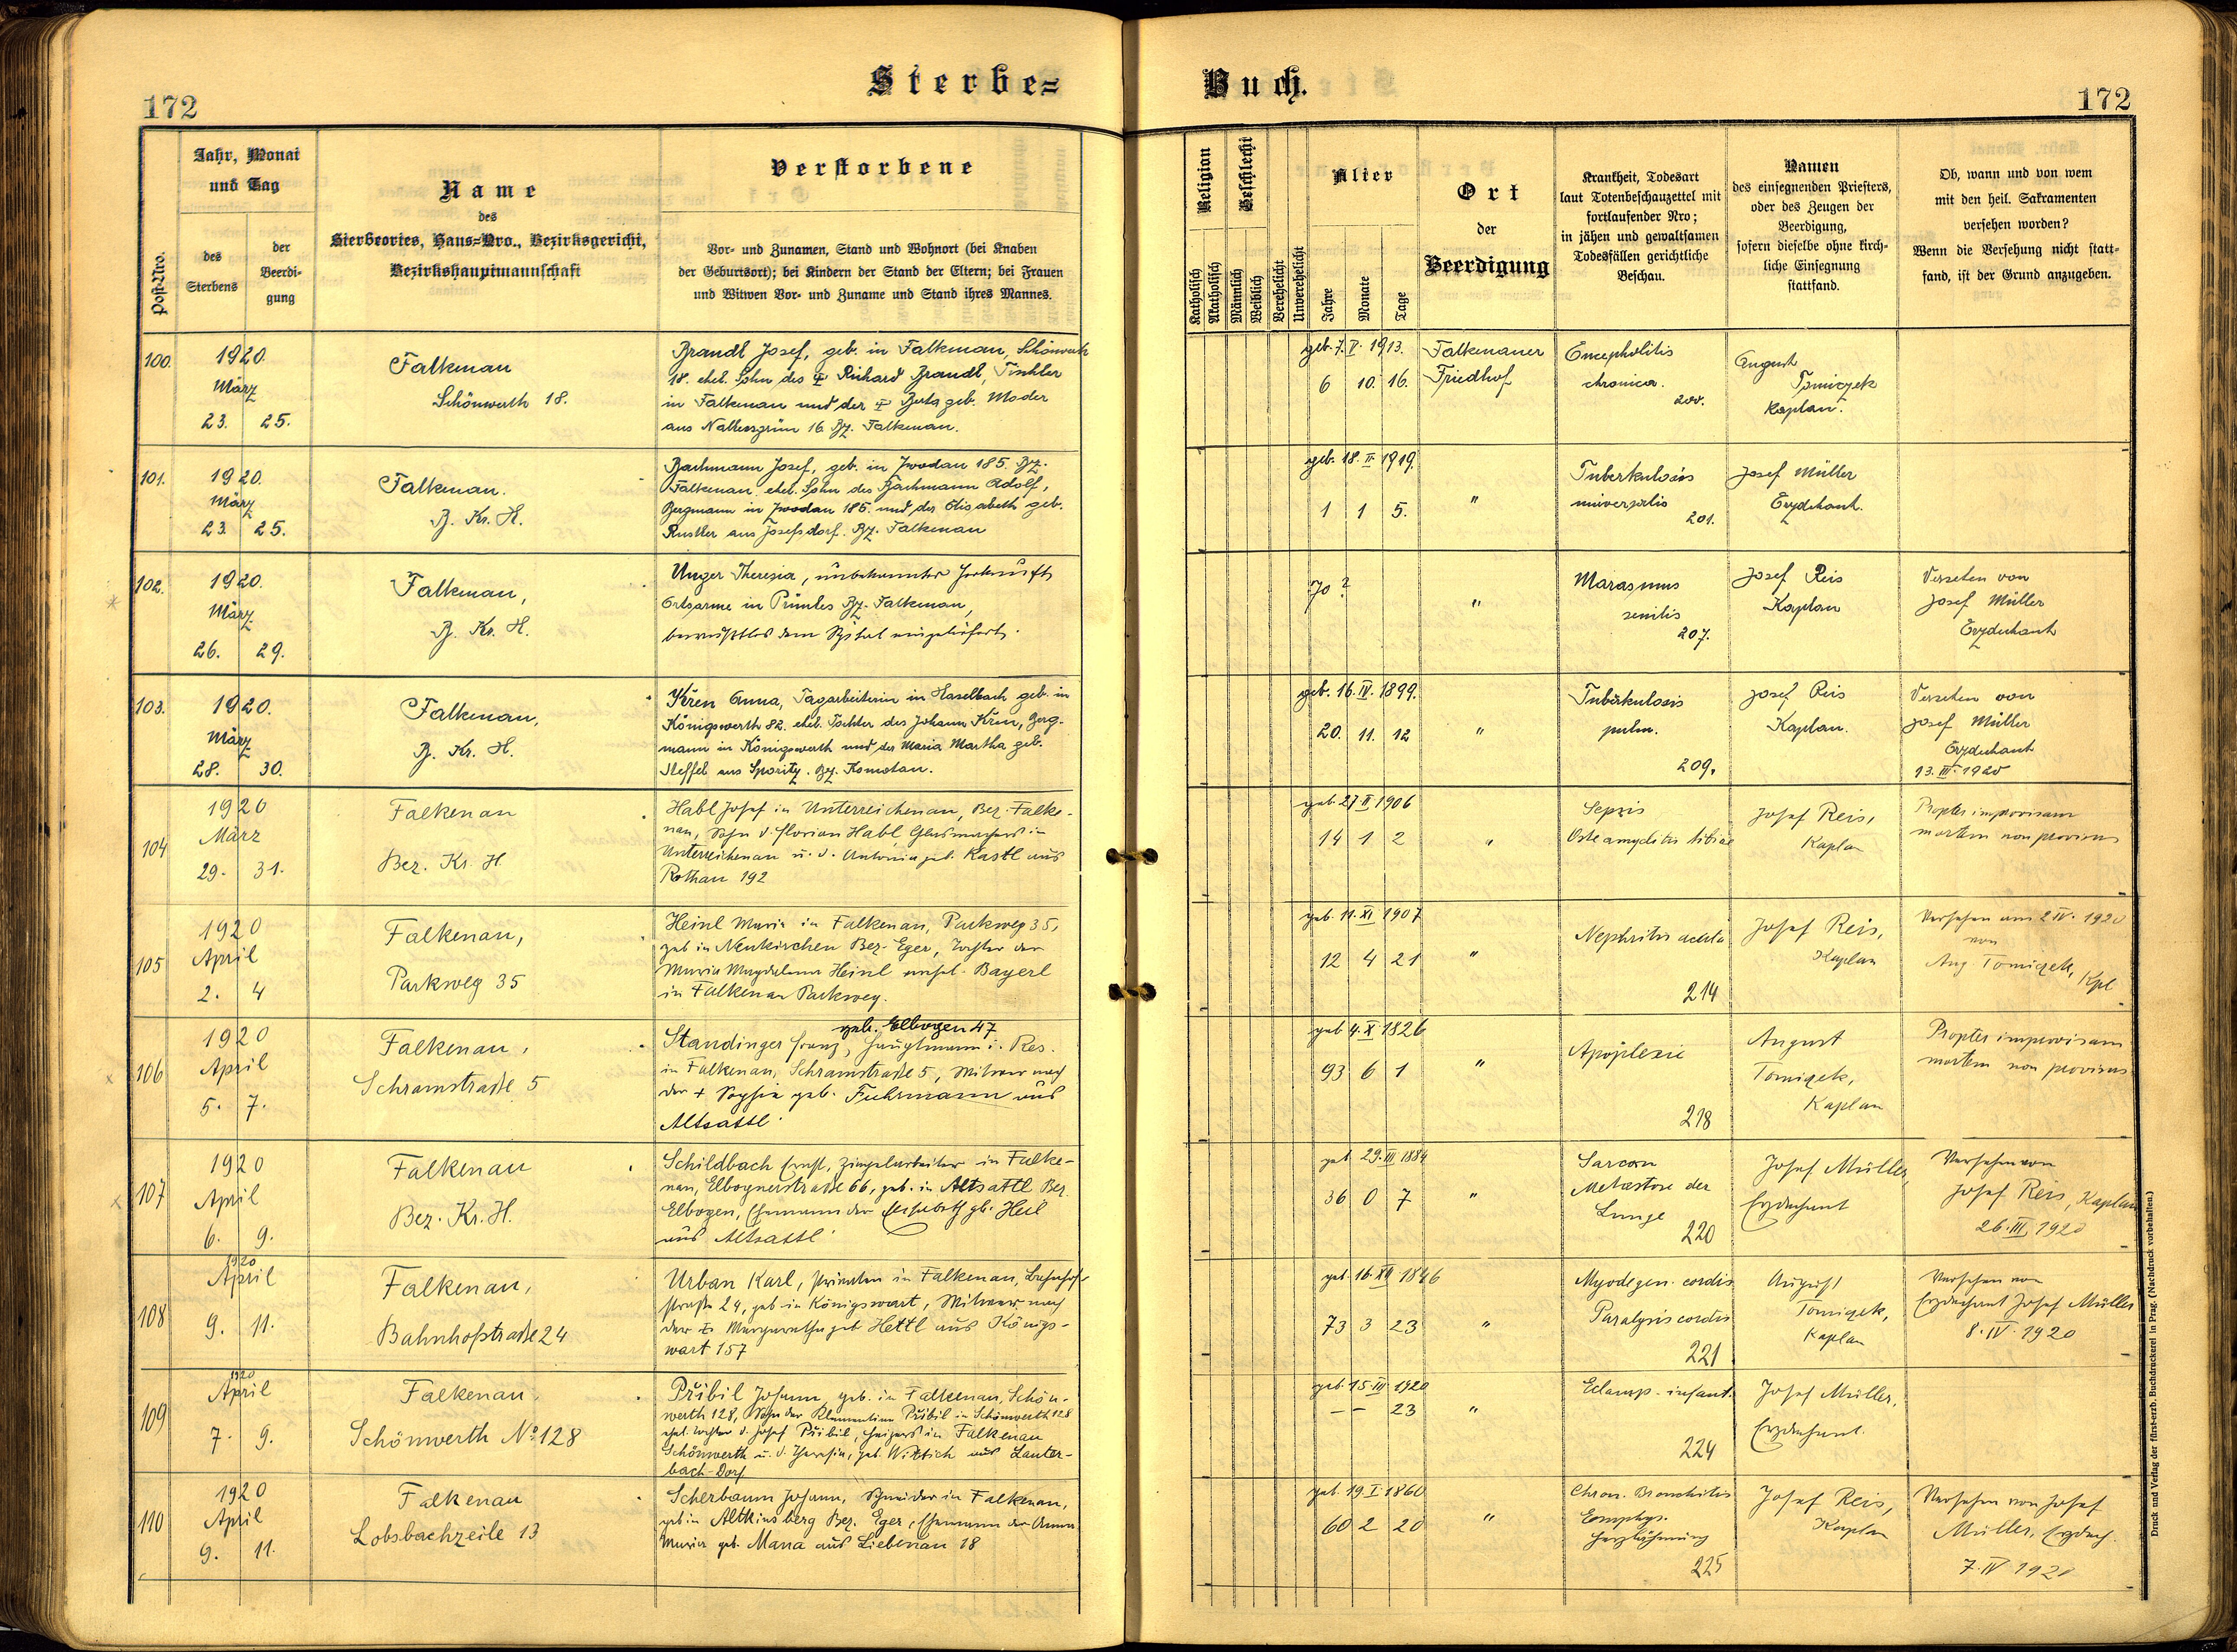 Sterbe=
Buch.
172
172
Post-Nro.
Jahr, Monat
und Tag
des
Sterbens
der
Beerdi-
gung
Name
des
Sterbeortes, Haus=Nro., Bezirksgericht,
Bezirkshauptmannschaft
Verstorbene
Vor- und Zunamen, Stand und Wohnort (bei Knaben
der Geburtsort); bei Kindern der Stand der Eltern; bei Frauen
und Witwen Vor- und Zuname und Stand ihres Mannes.
Religion
Katholisch
Akatholisch
Geschlecht
Männlich
Weiblich
Verehelicht
Unverehelicht
Alter
Jahre
Monate
Tage
Ort
der
Beerdigung
Krankheit, Todesart
laut Totenbeschauzettel mit
fortlaufender Nro;
in jähen und gewaltsamen
Todesfällen gerichtliche
Beschau.
Namen
des einsegnenden Priesters,
oder des Zeugen der
Beerdigung,
sofern dieselbe ohne kirch-
liche Einsegnung
stattfand.
Ob, wann und von wem
mit den heil. Sakramenten
versehen worden?
Wenn die Versehung nicht statt-
fand, ist der Grund anzugeben.
100.
1920.
März
23. 25.
Falkenau
Schönwerth 18.
Brandl Josef, geb. in Falkenau, Schönwerth
18. ehel. Sohn des Richard Brandl, Tischler
in Falkenau und der Berta geb. Moder
aus 16. Bz. Falkenau.
geb. 7. V. 1913.
6 10. 16.
Falkenauer
Friedhof
Encephalitis
chronica.
200.
August
Tomiczek
Kaplan.
101.
1920.
März
23. 25.
Falkenau.
B. Kr. H.
Bachmann Josef, geb. in Zwodau 185. Bz.
Falkenau, ehel. Sohn des Bachmann Adolf,
Bergmann in Zwodau 185. und der Elisabeth geb.
aus Josefsdorf. Bz. Falkenau
geb. 18. II. 1919.
1 1 5.
"
Tuberkulosis
universalis
201.
Josef Müller
Erzdechant.
102.
1920.
März
26. 29.
Falkenau,
B. Kr. H.
Unger Theresia, unbekannter Herkunft,
Ortsarme in Prünles Bz. Falkenau,
bewußtlos dem Spital eingeliefert.
70?
"
Marasmus
senilis
207.
Josef Reis
Kaplan
Versehen von
Josef Müller
Erzdechant
103.
1920.
März
28. 30.
Falkenau,
B. Kr. H.
Kren Anna, Tagarbeiterin in Haselbach geb. in
Königswerth 82. ehel. Tochter des Johann Kren, Berg-
mann in Königswerth und der Maria Martha geb.
Steffel aus Sporitz. Bz. Komotau.
geb. 16. IV. 1899.
20. 11. 12
"
Tuberkulosis
pulm.
209.
Josef Reis
Kaplan.
Versehen von
Josef Müller
Erzdechant
13. III. 1920
104
1920
März
29. 31.
Falkenau
Bez. Kr. H
Habl Josef in Unterreichenau, Bez. Falke-
nau, Sohn d. Florian Habl, Glasmachers in
Unterreichenau u. d. Antonia geb. Kastl aus
Rothau 192
geb. 27 II 1906
14 1 2
"
Sepsis
tibiae
Josef Reis,
Kaplan
Propter improvisam
mortem non provisus
105
1920
April
2. 4
Falkenau,
Parkweg 35
Heinl Maria in Falkenau, Parkweg 35,
geb in Neukirchen Bez. Eger, Tochter der
Maria Magdalena Heinl verehel. Bayerl
in Falkenau Parkweg.
geb. 11. XI 1907
12 4 21
"
Nephritis acuta
214
Josef Reis,
Kaplan
Versehen am 2 IV. 1920
von
Aug Tomiczek, Kpl
106
1920
April
5. 7.
Falkenau,
Schramstraße 5
geb. Elbogen 47
Standinger Franz, Hauptmann i. Res.
in Falkenau, Schramstraße 5, Witwer nach
der + Sophia geb. Fuhrmann aus
Altsattl
geb 4. X 1826
93 6 1
"
Apoplexie
218
August
Tomiczek,
Kaplan
Propter improvisam
mortem non provisus
107
1920
April
6. 9.
Falkenau
Bez. Kr. H.
Schildbach Ernst, Ziegelarbeiter in Falke-
nau, Elbognerstraße 66, geb. in Altsattl Bez.
Elbogen, Ehemann der Elisabeth gb. Heil
aus Altsattl
geb. 29. III 1884
36 0 7
"
Sarcom
Metastase der
Lunge
220
Josef Müller,
Erzdechant
Versehen von
Josef Reis, Kaplan
26. III 1920
108
1920
April
9. 11.
Falkenau,
Bahnhofstraße 24
Urban Karl, in Falkenau, Bahnhof-
straße 24, geb in Königswart, Witwer nach
der + Margaretha geb Hettl aus Königs-
wart 157
geb. 16. XII 1846
73 3 23
"
Myodegen. cordis
Paralysis cordis
221
August
Tomiczek,
Kaplan
Versehen von
Erzdechant Josef Müller
8. IV. 1920
109
1920
April
7. 9.
Falkenau,
Schönwerth No 128
Přibil Johann, geb. in Falkenau, Schön-
werth 128, Sohn der Klementine Přibil in Schönwerth 128
ehel. Tochter d. Josef Přibil, Heizers in Falkenau
Schönwerth u. d. Theresia, geb. Wittich aus Lauter-
bach-Dorf
geb. 15. III 1920
- - 23
"
Eclamp. infant.
224
Josef Müller,
Erzdechant.
110
1920
April
9. 11.
Falkenau
Lobsbachzeile 13
Scherbaum Johann, Schneider in Falkenau,
geb in Altkinsberg Bez. Eger, Ehemann der Anna
Maria geb. Mana aus Liebenau 18
geb. 19. I 1860
60 2 20
"
Chron. Bronchitis
Emphys.
Herzlähmung
225
Josef Reis,
Kaplan
Versehen von Josef
Müller, Erzdech.
7. IV 1920
Druck und Verlag der fürst-erzb. Buchdruckerei in Prag. (Nachdruck vorbehalten.)